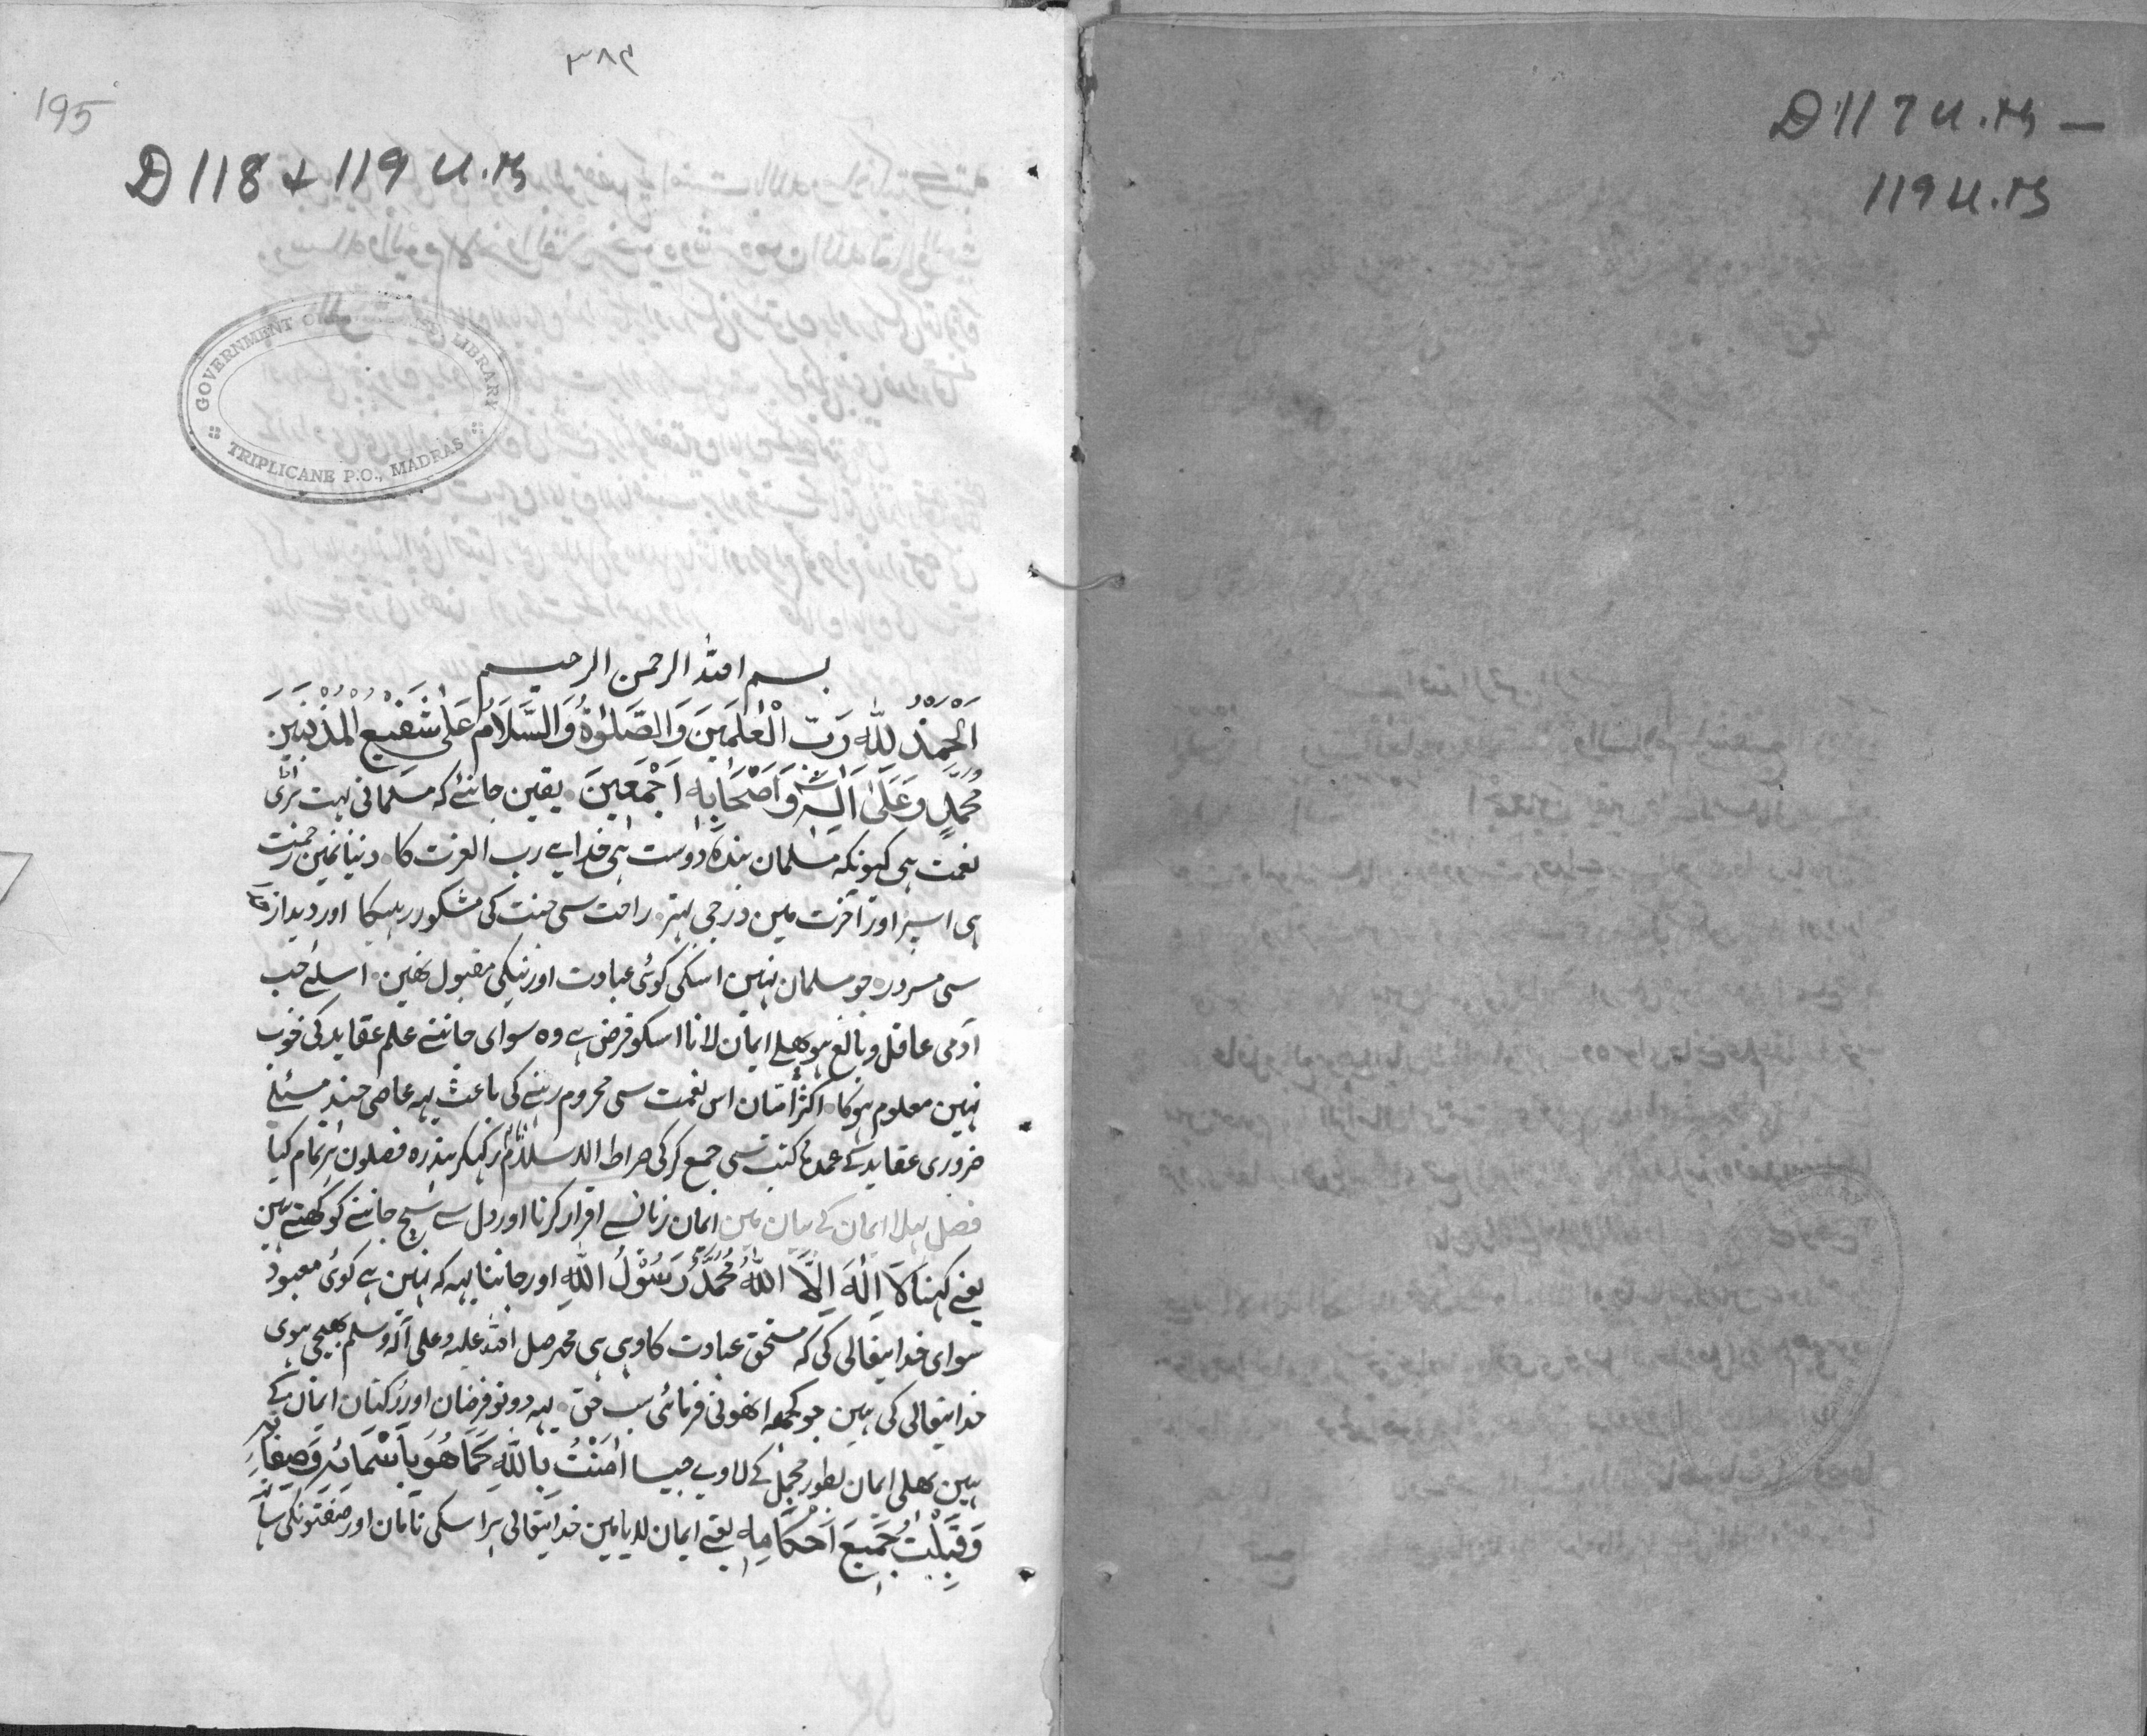 ۳۸۹
195
D 118 & 119 U.M
GOVERNMENT LIBRARY
TRIPLICANE P.O., MADRAS
D 117 U.M —
119 U.M
بسم الله الرحمن الرحيم
اَلْحَمْدُ لِلّٰهِ رَبِّ الْعٰلَمِيْنَ وَالصَّلٰوةُ وَالسَّلَامُ عَلٰى شَفِيْعِ الْمُذْنِبِيْنَ
مُحَمَّدٍ وَعَلٰى اٰلِهٖ وَاَصْحَابِهٖ اَجْمَعِيْنَ یقین جانئے کہ مسلمانی بہت بڑی
نعمت ہی کیونکہ مسلمان بندہ دوست ہی خدایے رب العزت کا دنیا مین رحمت
ہی اسپر اور آخرت مین درجی بہتر راحت سی جنت کی مشکور رہیگا اور دیدار
سی مسرور جو مسلمان نہین اسکی کوئی عبادت اور نیکی مقبول نھین اسلئے جب
آدمی عاقل و بالغ ہو پھلے ایمان لانا اسکو فرض ہے وہ سوای جاننے علم عقاید کی خوب
نہین معلوم ہوگا اکثر امتان اس نعمت سی محروم رہنے کی باعث یہہ عاصی چند مسئلے
ضروری عقاید کے عمدے کتب سی جمع کر کی صراط الاسلام نام رکھکر پندرہ فصلون پر تمام کیا
فصل پہلا ایمان کے بیان مین ایمان زبان سے اقرار کرنا اور دل سے سچ جاننے کو کھتے ہین
یعنے کہنا لَا اِلٰهَ اِلَّا اللّٰهُ مُحَمَّدٌ رَّسُوْلُ اللّٰهِ اور جاننا یہہ کہ نہین ہے کوئی معبود
سوای خدایتعالی کی کہ مستحق عبادت کا وہی ہی محمد صلی اللہ علیہ وعلی آلہ وسلم بھیجی ہوی
خدایتعالی کی ہین جو کچھہ انھونی فرمائی سب حق یہہ دونو فرضان اور رکنان ایمان کے
ہین پھلی ایمان بطور مجمل کے لاوے جیسا اٰمَنْتُ بِاللّٰهِ كَمَا هُوَ بِاَسْمَائِهٖ وَصِفَاتِهٖ
وَقَبِلْتُ جَمِيْعَ اَحْكَامِهٖ یعنے ایمان لایا مین خدایتعالی پر اسکی نامان اور صفتونکی سات